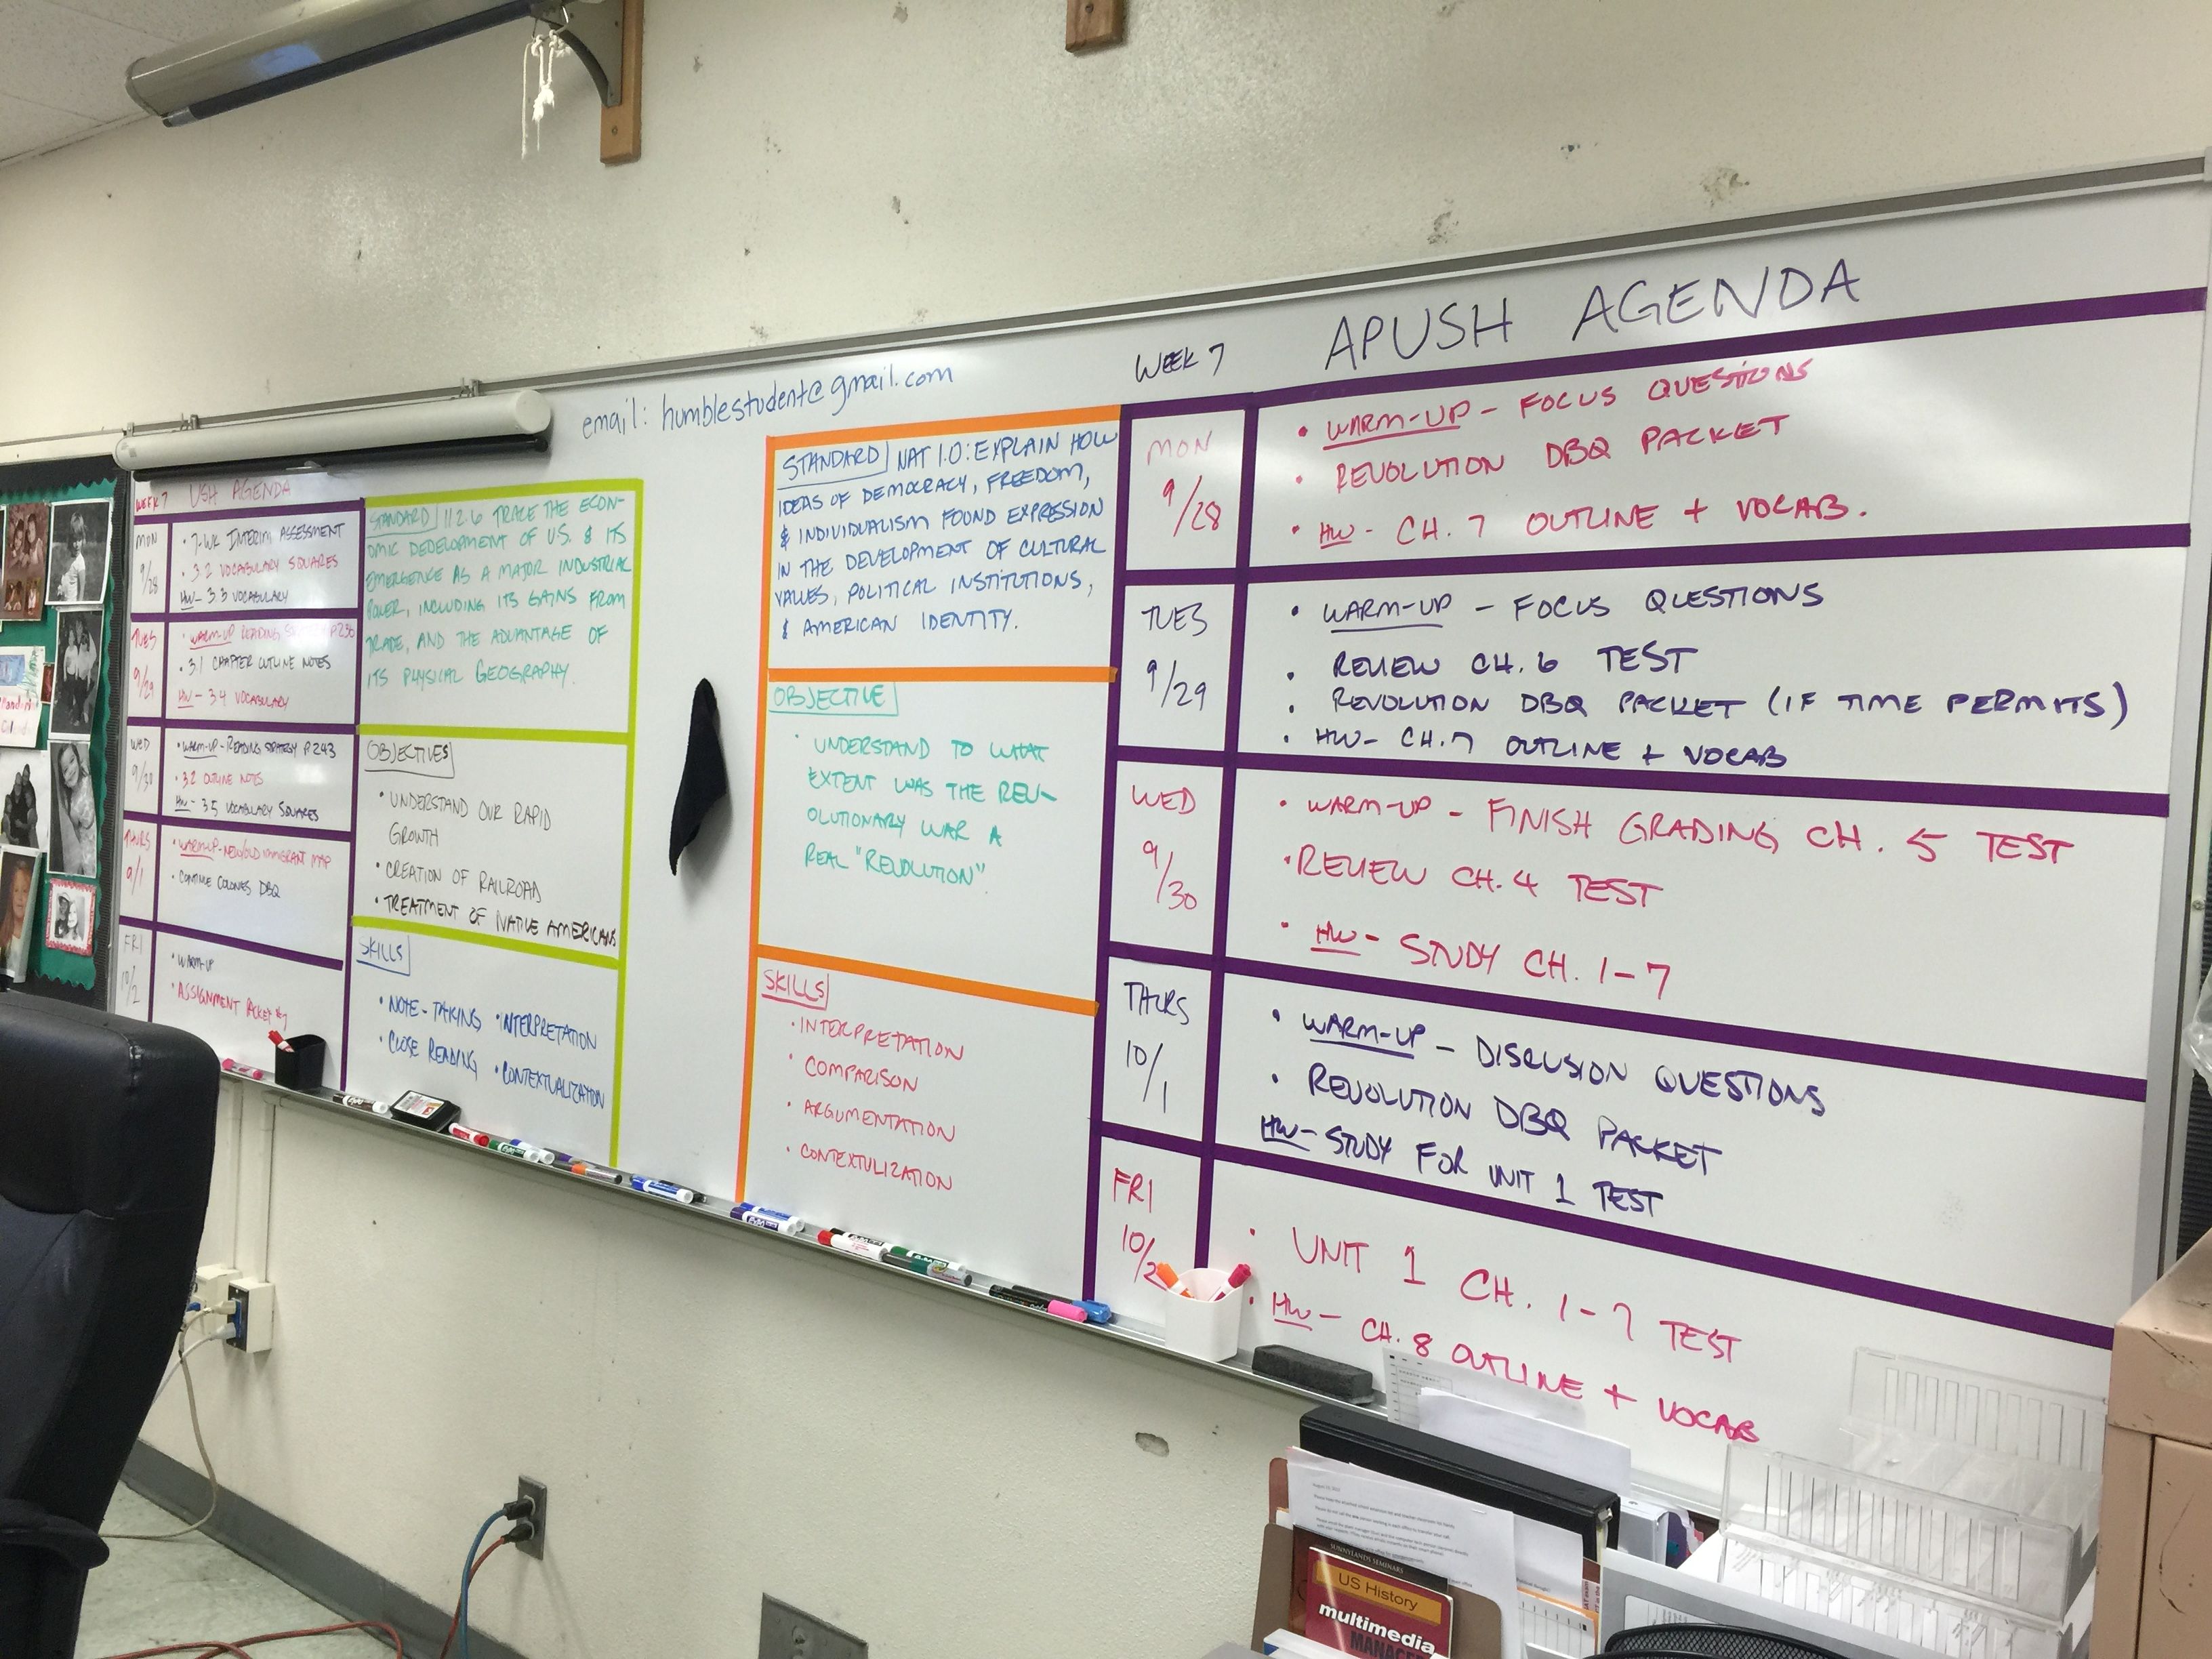 email: humblestudent@gmail.com
WEEK 7 USH AGENDA
MON
9/28
• 7-WK INTERIM ASSESSMENT
• 3.2 VOCABULARY SQUARES
HW- 3.3 VOCABULARY
TUES
9/29
• WARM-UP READING P236
• 3.1 CHAPTER OUTLINE NOTES
HW- 3.4 VOCABULARY
WED
9/30
• WARM-UP - READING STRATEGY P.243
• 3.2 OUTLINE NOTES
HW- 3.5 VOCABULARY SQUARES
THURS
9/1
• WARM-UP- NEW/OLD IMMIGRANT MAP
• CONTINUE COLONIES DBQ
FRI
10/2
• WARM-UP
• ASSIGNMENT PACKET #7
STANDARD 11.2.6 TRACE THE ECON-
OMIC DEDELOPMENT OF U.S. & ITS
EMERGENCE AS A MAJOR INDUSTRIAL
POWER, INCLUDING ITS GAINS FROM
TRADE, AND THE ADVANTAGE OF
ITS PHYSICAL GEOGRAPHY.
OBJECTIVES
• UNDERSTAND OUR RAPID
GROWTH
• CREATION OF RAILROAD
• TREATMENT OF NATIVE AMERICANS
SKILLS
• NOTE-TAKING • INTERPRETATION
• CLOSE READING • CONTEXTUALIZATION
STANDARD NAT 1.0: EXPLAIN HOW
IDEAS OF DEMOCRACY, FREEDOM,
& INDIVIDUALISM FOUND EXPRESSION
IN THE DEVELOPMENT OF CULTURAL
VALUES, POLITICAL INSTITUTIONS,
& AMERICAN IDENTITY.
OBJECTIVE
• UNDERSTAND TO WHAT
EXTENT WAS THE REV-
OLUTIONARY WAR A
REAL "REVOLUTION".
SKILLS
• INTERPRETATION
• COMPARISON
• ARGUMENTATION
• CONTEXTULIZATION
WEEK 7 APUSH AGENDA
MON
9/28
• WARM-UP - FOCUS QUESTIONS
• REVOLUTION DBQ PACKET
• HW- CH. 7 OUTLINE + VOCAB.
TUES
9/29
• WARM-UP - FOCUS QUESTIONS
• REVIEW CH. 6 TEST
• REVOLUTION DBQ PACKET (IF TIME PERMITS)
• HW- CH.7 OUTLINE + VOCAB
WED
9/30
• WARM-UP - FINISH GRADING CH. 5 TEST
• REVIEW CH. 4 TEST
• HW- STUDY CH. 1-7
THURS
10/1
• WARM-UP - DISCUSION QUESTIONS
• REVOLUTION DBQ PACKET
HW- STUDY FOR UNIT 1 TEST
FRI
10/2
• UNIT 1 CH. 1-7 TEST
• HW- CH. 8 OUTLINE + VOCAB
SUNNYLANDS SEMINARS
US History
multimedia